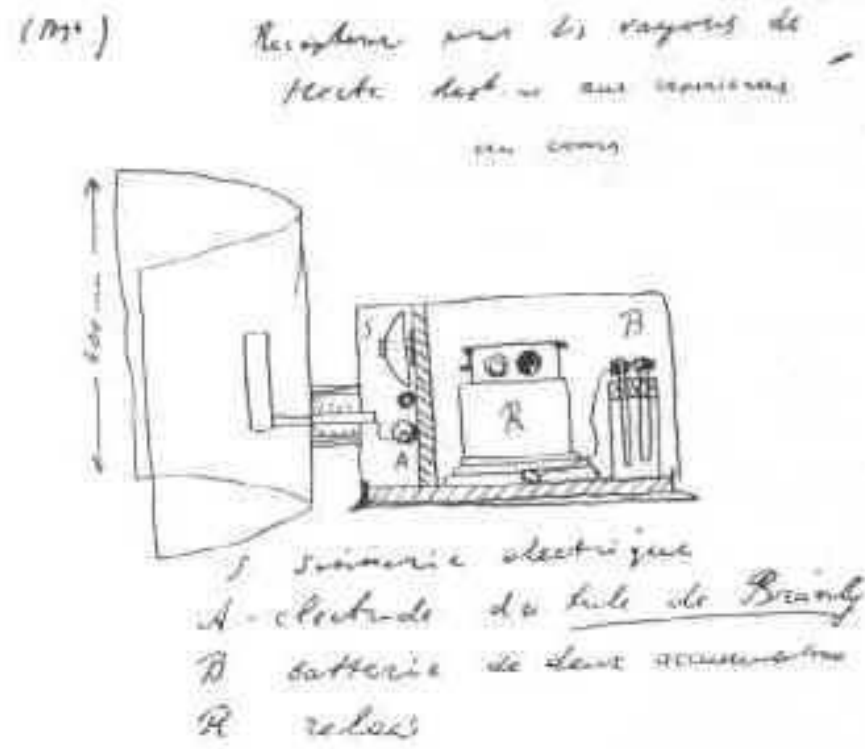 Récepteur pour les rayons de
Hertz aux expériences
en cours
S
B
R
A
S Sonnerie électrique
A - électrode du tube de Branly
B batterie de deux accumulateurs
R relais